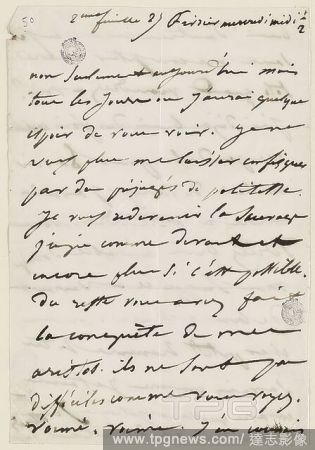 50
2me feuille 25 Février mercredi midi 1/2
non seulement aujourd'hui mais
tous les jours ou j'aurai quelque
espoir de vous voir. je ne
veux plus me laisser
par des préjugés de politesse.
Je veux redevenir la
comme devant et
encore plus si c'est possible.
du reste vous avez fait
la conquête de mes
artistes. ils ne sont pas
difficiles comme vous voyez.
TPG
www.tpgnews.com / 達志影像